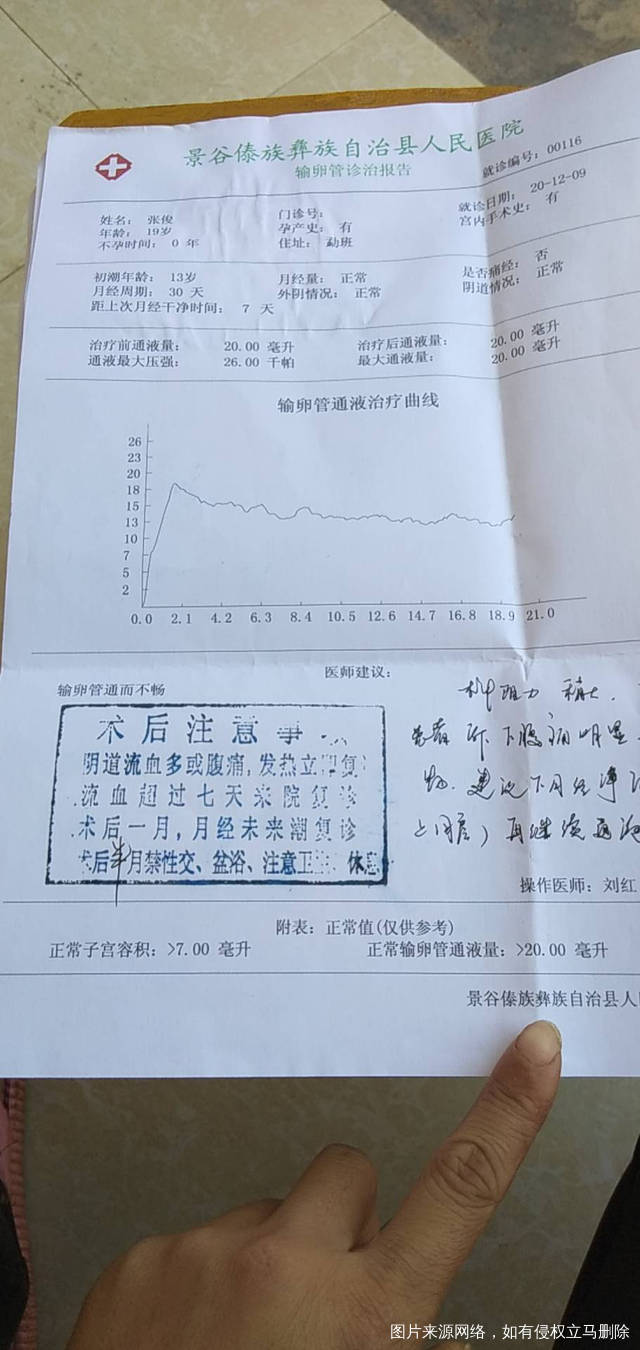 景谷傣族彝族自治县人民医院
输卵管诊治报告
就诊编号: 00116
姓名: 张俊 门诊号: 就诊日期: 20-12-09
年龄: 19岁 孕产史: 有 宫内手术史: 有
不孕时间: 0 年 住址: 勐班
初潮年龄: 13岁 月经量: 正常 是否痛经: 否
月经周期: 30 天 外阴情况: 正常 阴道情况: 正常
距上次月经干净时间: 7 天
治疗前通液量: 20.00 毫升 治疗后通液量: 20.00 毫升
通液最大压强: 26.00 千帕 最大通液量: 20.00 毫升
输卵管通液治疗曲线
26
23
20
18
15
13
10
7
5
2
0.0 2.1 4.2 6.3 8.4 10.5 12.6 14.7 16.8 18.9 21.0
医师建议:
输卵管通而不畅
术后注意事
阴道流血多或腹痛,发热立即复
流血超过七天来院复诊
术后一月,月经未来潮复诊
术后半月禁性交、盆浴、注意卫 休息
阻力稍大.
患者诉下腹痛明显
建议下月经净
再继续通液
操作医师: 刘红
附表: 正常值(仅供参考)
正常子宫容积: >7.00 毫升 正常输卵管通液量: >20.00 毫升
景谷傣族彝族自治县人
图片来源网络，如有侵权立马删除